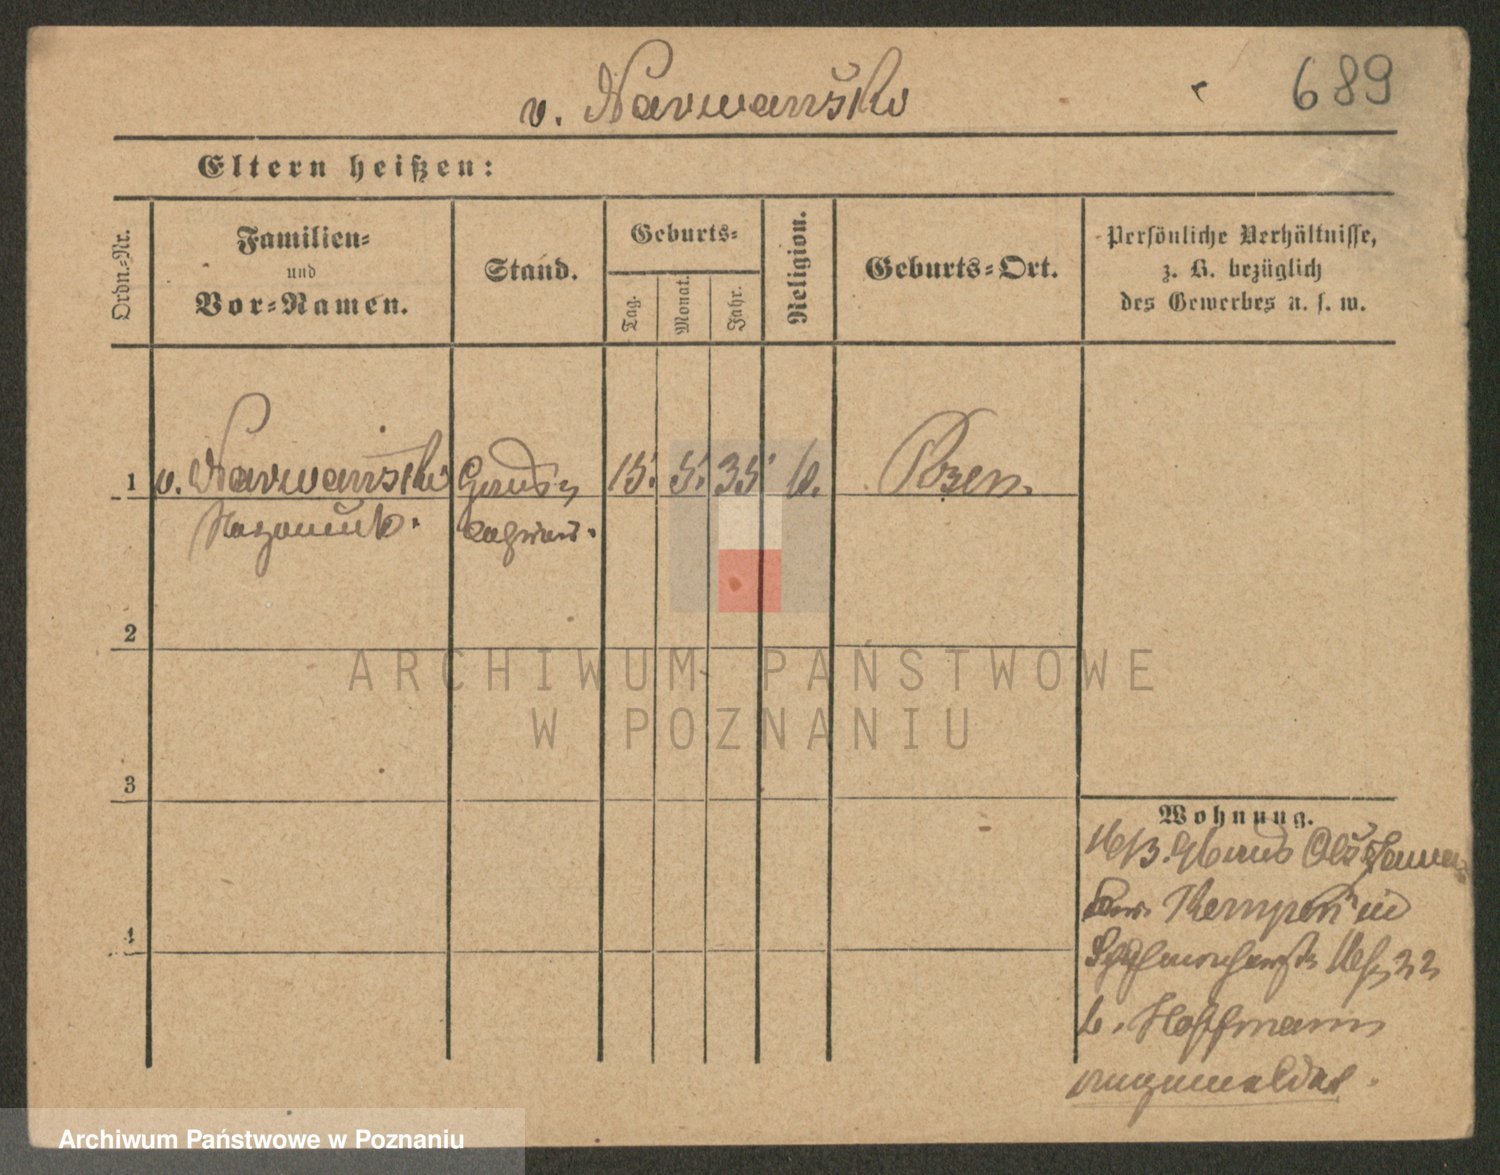 v. Narwański
689
Eltern heißen:
Ordn.-Nr.
Familien-
und
Vor-Namen.
Stand.
Geburts-
Tag.
Monat.
Jahr.
Religion.
Geburts-Ort.
Persönliche Verhältnisse,
z. B. bezüglich
des Gewerbes u. s. w.
1 v. Narwański 15. 5. 35 k. Posen
2
3
4
Wohnung.
Kempen in
22
b. Hoffmann
angemeldet.
ARCHIWUM PAŃSTWOWE
W POZNANIU
Archiwum Państwowe w Poznaniu